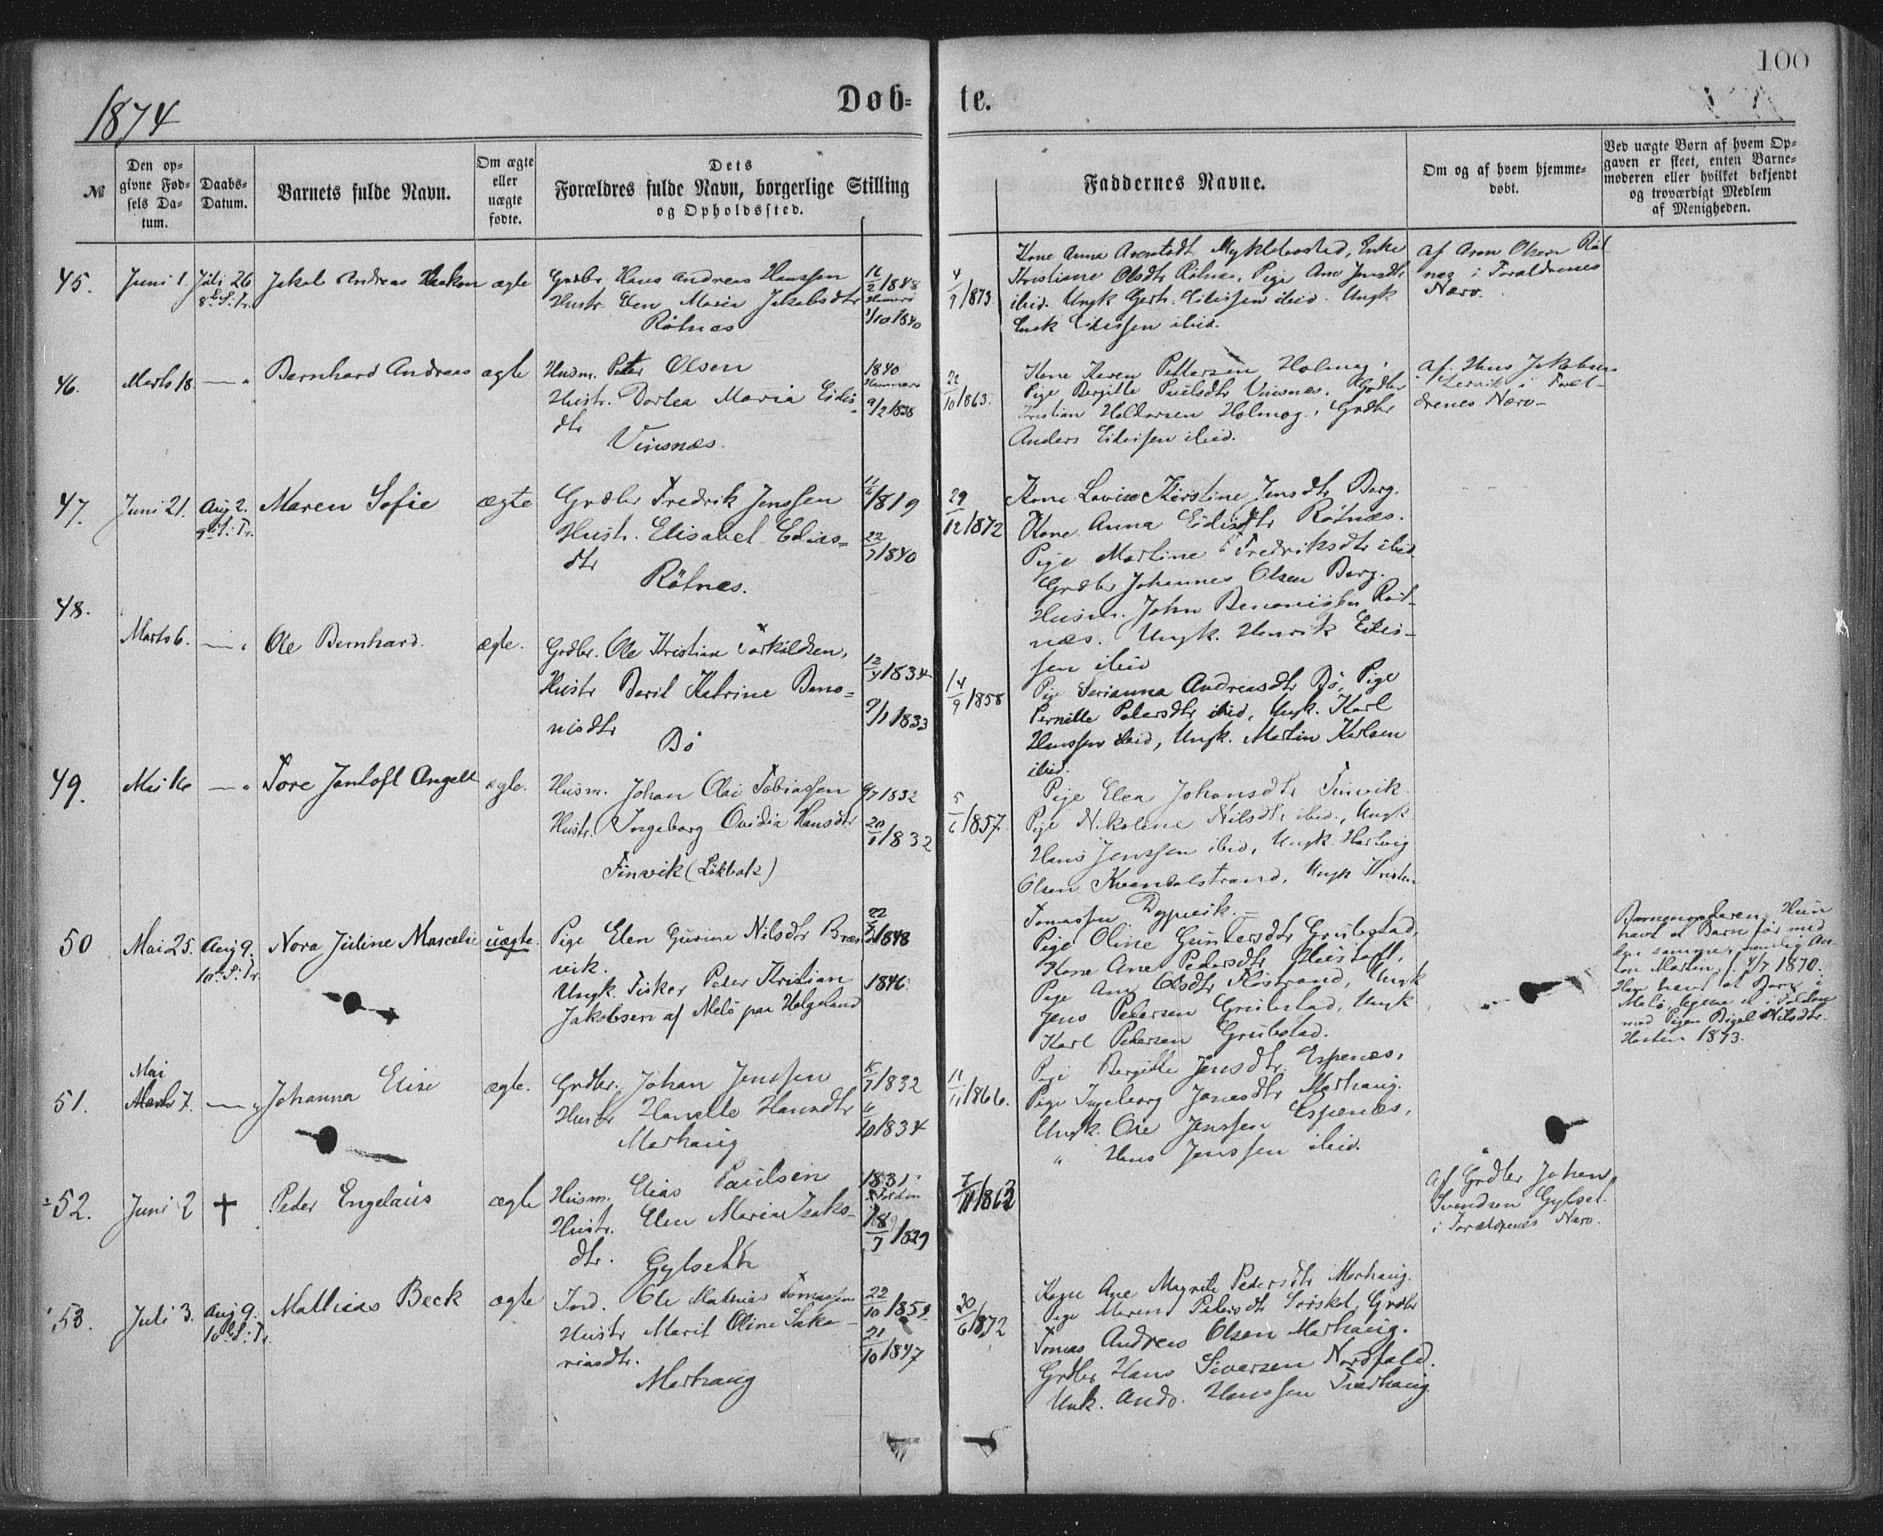 100
1874
Døb= te.
№
Den op=
givne Fød=
sels Da=
tum.
Daabs=
Datum.
Barnets fulde Navn.
Om ægte
eller
uægte
fødte.
Dets
Forældres fulde Navn, borgerlige Stilling
og Opholdssted.
Faddernes Navne.
Om og af hvem hjemme=
døbt.
Ved uægte Børn af hvem Op=
gaven er skeet, enten Barne=
moderen eller hvilket bekjendt
og troværdigt Medlem
af Menigheden.
45. Juni 1. Juli 26
8de S. Tr.
Jakob Andreas Haakon ægte
Grdbr Hans Andreas Hanssen
Hustr. Elen Maria Jakobsdtr
Rötnæs
16/2 1848
Hameró
1/10 1840
4/9 1873
Kone Anna Arentsdt Myklebostad, Enke
Kristiane Olsdtr Rötnæs, Pige Ane Jensdtr
ibid. Ungk Gerh. Eliassen ibid. Ungk
Enok Eliassen ibid.
af Aron Olsen Röt
næs i Forældrenes
Nærv.
46. Marts 18 — "
Bernhard Andreas ægte
Husm. Peter Olsen
Hustr. Dortea Maria Elias=
dtr
Vinsnæs.
1840
Hammerö
9/2 1838
22/10 1863.
Kone Karen Pettersen Holmag,
Pige Bergitte Paulsdtr Vinsnæs, Grdbr
Kristian Holdorsen Holmag., Grdbr
Anders Eliassen ibid.
af Hans Jakobsen
Lervik i Foræl-
drenes Nærv-
47. Juni 21. Aug 2.
9de S. Tr.
Maren Sofie ægte
Grdbr Fredrik Jenssen
Hustr. Elisabet Elias=
dtr
Rötnæs.
1819
22/7 1840
29/12 1872
Kone Lovise Kirstine Jensdtr Berg.
Kone Anna Eliasdtr Rötnæs.
Pige Martine Fredriksdtr ibid
Grdbr Johannes Olsen Berg.
Husm. John Benonissen Röt-
næs. Ungk. Henrik Elias-
sen ibid
48.
Marts 6. — "
Ole Bernhard. ægte.
Grdbr. Ole Kristian Torkildsen,
Hustr Berit Katrine Beno=
nisdtr
Bö
12/4 1834
9/1 1833
14/9 1858
Pige Serianna Andreasdtr Bö, Pige
Pernille Pedersdtr ibid, Ungk. Karl
Hanssen ibid, Ungk. Martin Karlsen
ibid.
49. Mai 16 — "
Tore Jentoft Angell ægte.
Husm. Johan Olai Tobiassen
Hustr. Ingeborg Ovidia Hansdtr
Finvik (Lökbak)
9/7 1832
20/1 1832
5/6 1857.
Pige Elen Johansdtr Finvik.
Pige Nikoline Nilsdtr ibid., Ungk
Hans Jenssen ibid, Ungk. Hartvig
Olsen Kvandalstrand, Ungk Kristen
Tomassen Dypvik.
50 Mai 25. Aug 9.
10de S. Tr.
Nora Juline Marcelie uægte.
Pige Elen Gurine Nilsdtr
vik.
Ungk. Fisker Peter Kristian
Jakobsen af Melö paa Helgeland
1848
1846
Pige Oline Guntersdtr Grubstad,
Kone Ane Pedersdtr
Pige Ane Olsdtr Ungk
Jens Pedersen Grubstad, Ungk
Karl Pedersen Grubstad.
Barnemoderen. Hun
havt et Barn för med
den samme, nemlig An-
ton Martin, f. 4/7 1870.
Han havt et Barn i
Melö, ligesaa et i Folden
med Pigen Nilsdtr.
Hösten 1873.
51.
Mai
Marts 7. — "
Johanna Elise ægte.
Grdbr. Johan Jenssen
Hustr Hanelle Hansdtr
Mørhaug
1832
10 1834
11/11 1866.
Pige Bergitte Jensdtr Espenæs,
Pige Ingeborg Jonasdtr Mørhaug.
Ungk. Ole Jenssen Espenæs,
" Hans Jenssen ibid.
52. Juni 2 †
Peder Engelaus ægte
Husm. Elias Paulsen
Hustr. Elen Maria Isaks-
dtr.
Gylseth
1831
Folden
18/7 1829
1863
Af Grdbr Johan
Svendsen Gylset
i Forældrenes Nærv.
53. Juli 3. Aug 9.
10de S. Tr.
Mathias Beck ægte
Ind. Ole Mathias Tomassen
Hustr Marit Oline Saka-
riasdtr.
Mørhaug
22/10 1851
21/10 1847
20/6 1872
Kone Ane Magrete Pedersdtr Mørhaug.
Pige Maren Pedersdtr Sørskot, Grdbr
Tomas Andreas Olsen Mørhaug.
Grdbr Hans Siversen Nordfold.
Unk. Ando. Hanssen Tverhaug